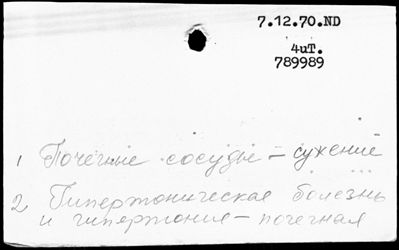 7.12.70.ND
4иТ.
789989
1 Почечные сосуды – сужение
2 Гипертоническая болезнь
и гипертония – почечная